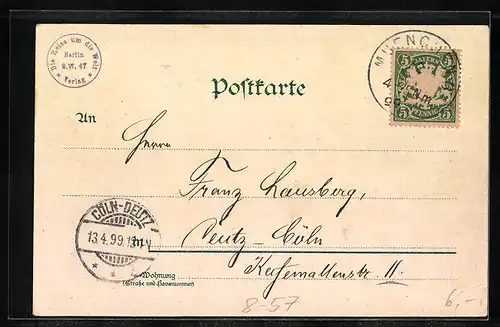 Die Reise um die Welt
Berlin
S.W. 47
Verlag
MUENCH
BAYERN
5 5
5 5
PFENNIG
Postkarte
An
Herrn
Franz Lausberg,
CÖLN-DEUTZ
13.4.99.
in
Deutz-Cöln
Wohnung
(Straße und Hausnummer)
Kasemattenstr. 11.
8-57
6,-